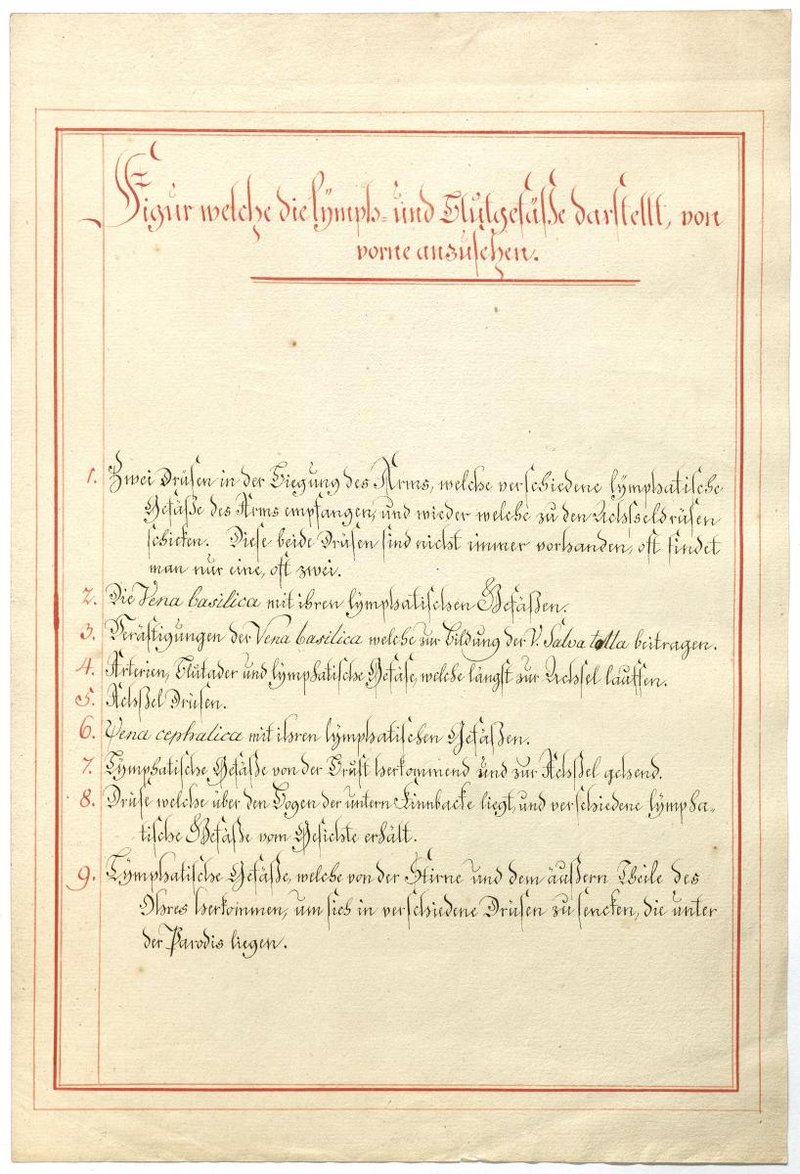 Figur welche die lymph- und Blutgefäße darstellt, von
vorne anzusehen.
1. Zwei Drüsen in der Biegung des Arms, welche verschiedene lymphatische
Gefäße des Arms empfangen, und wieder welche zu den Achsseldrüsen
schicken. Diese beide Drüsen sind nicht immer vorhanden, oft findet
man nur eine, oft zwei.
2. Die Vena basilica mit ihren lymphatischen Gefäßen.
3. Verästigungen der Vena basilica welche zur Bildung der V. Salvatella beitragen.
4. Arterien, Blutader und lymphatische Gefäse, welche längst zur Achsel lauffen.
5. Achßel Drüsen.
6. Vena cephalica mit ihren lymphatischen Gefäßen.
7. Lymphatische Gefäße von der Brust herkommend und zur Achßel gehend.
8. Drüse welche über den Bogen der untern Kinnbacke liegt, und verschiedene lympha-
tische Gefäße vom Gesichte erhält.
9. Lymphatische Gefäße, welche von der Stirne und dem äußern Theile des
Ohres herkommen, um sich in verschiedene Drüsen zu sencken, die unter
der Parodis liegen.